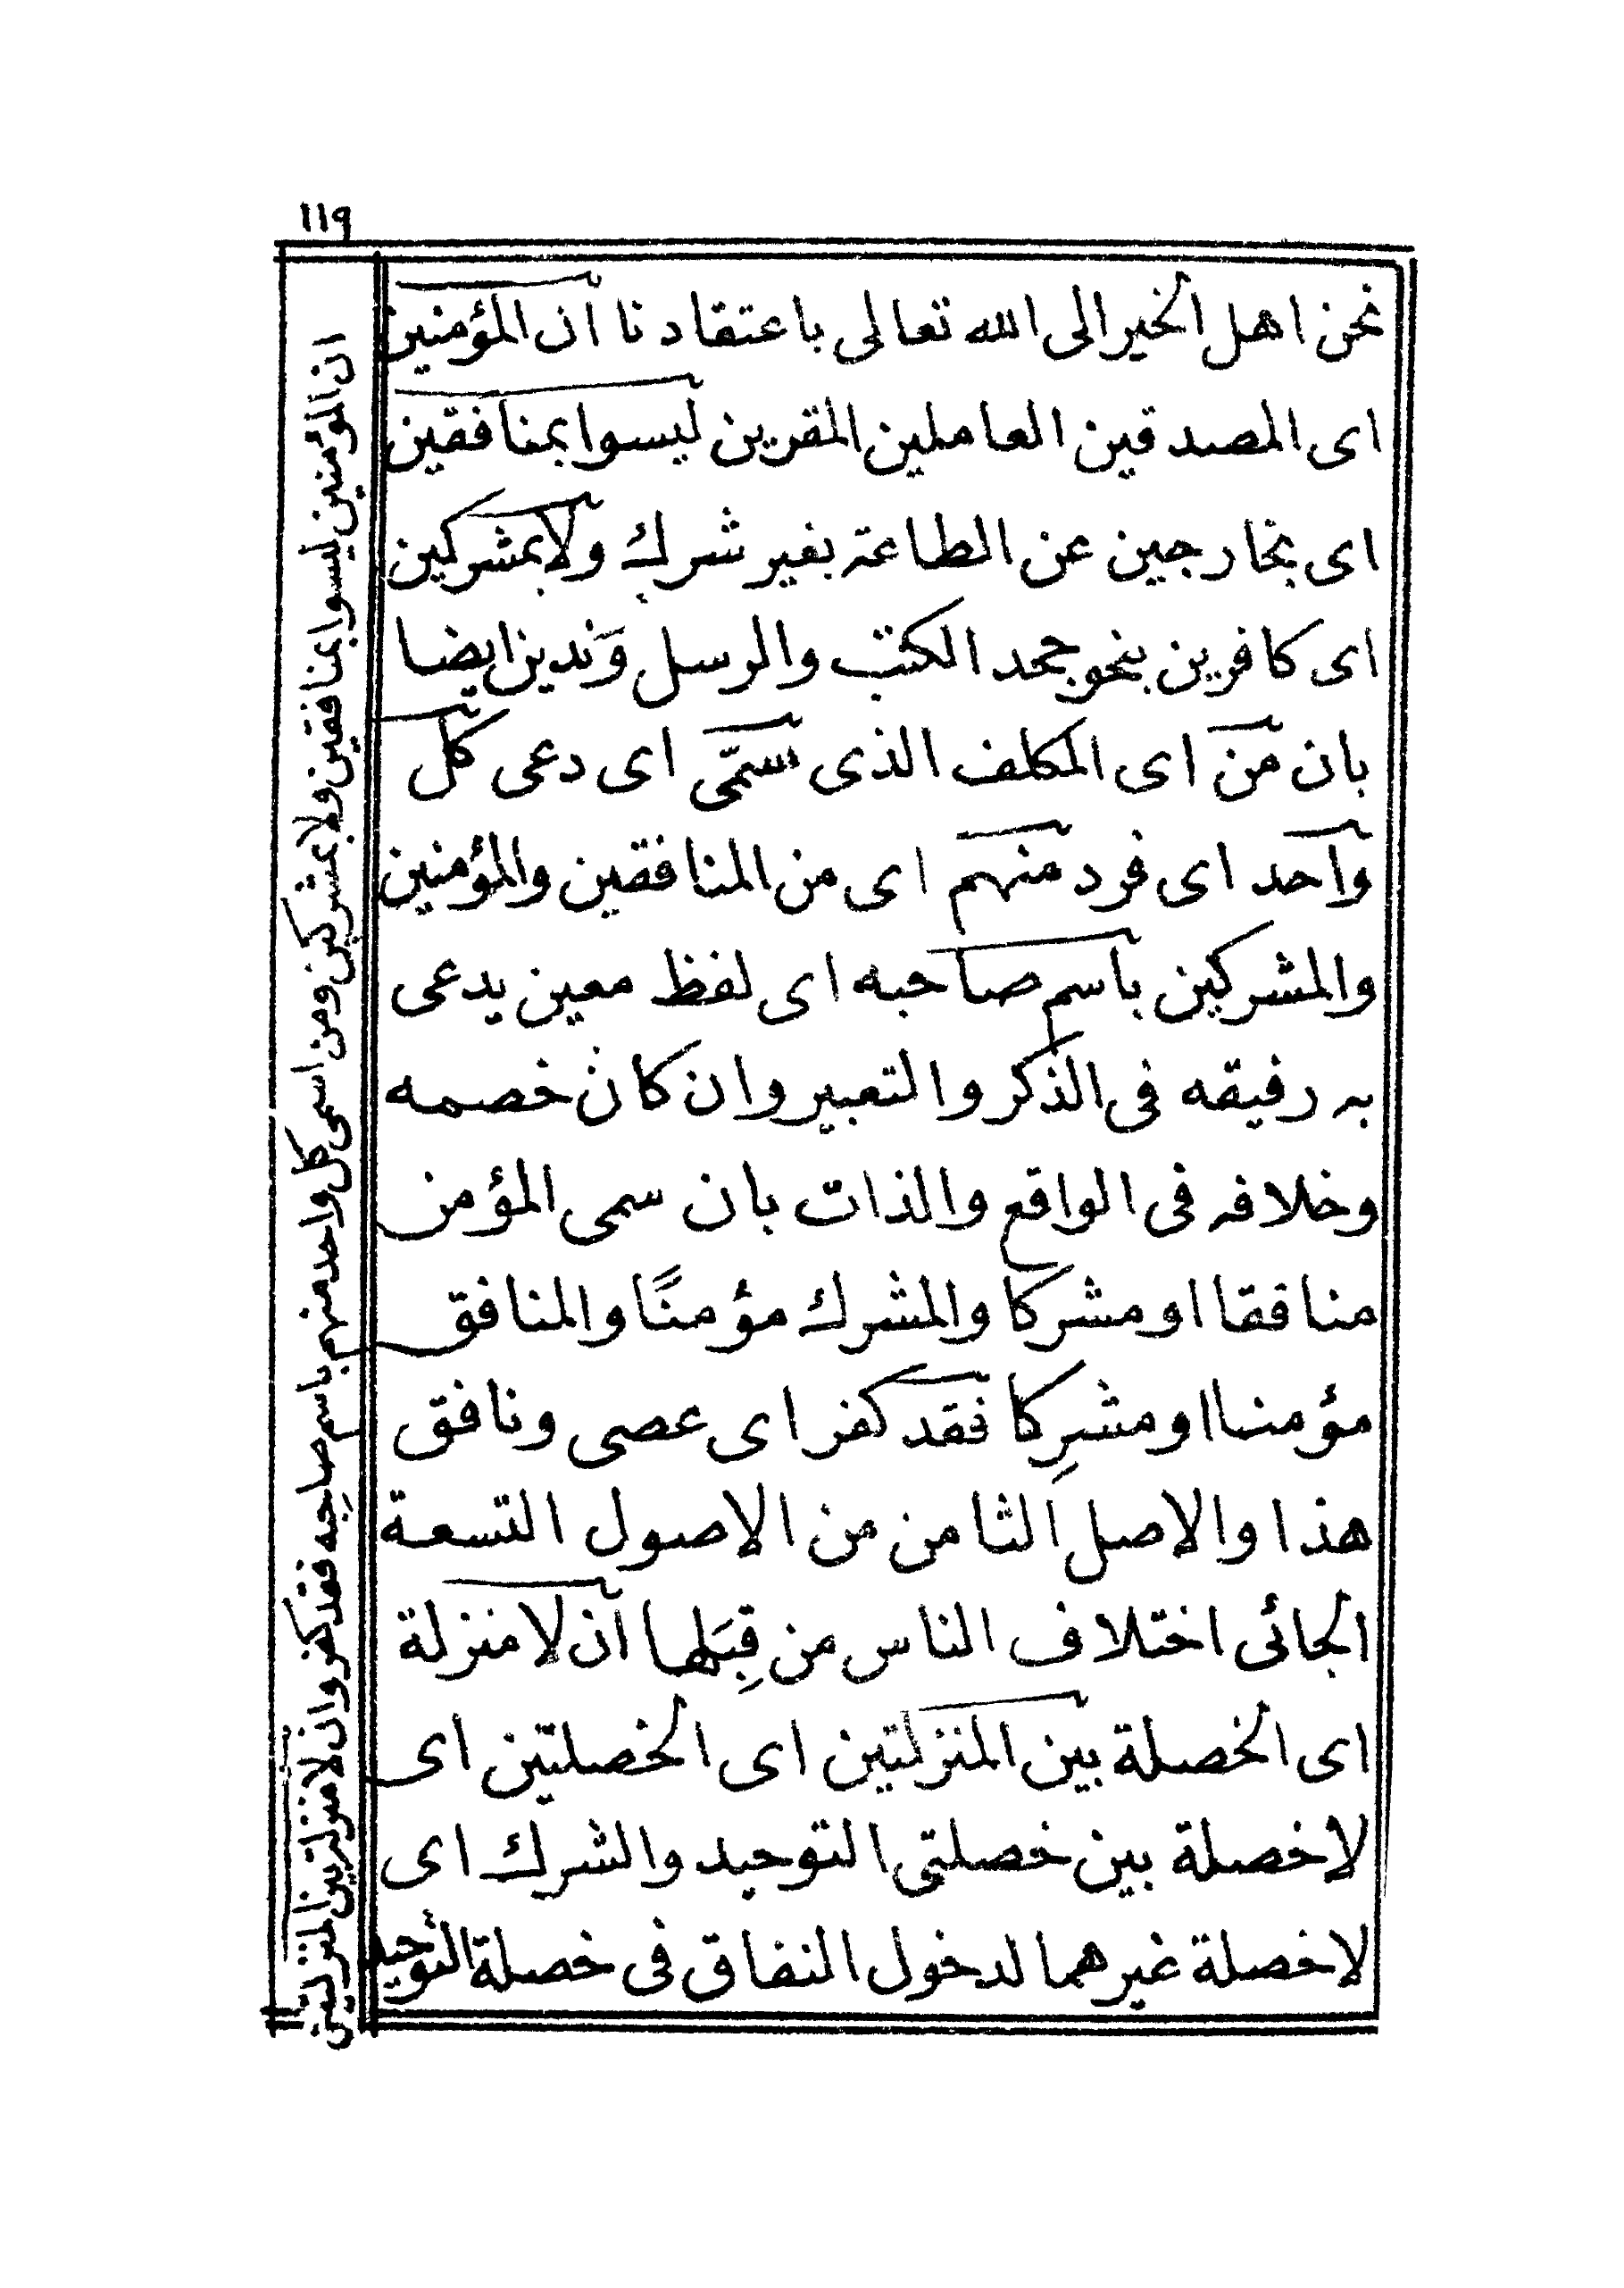 ١١٩
نحن اهل الخير الى الله تعالى باعتقادنا ان المؤمنين
اى المصدقين العاملين المقرين ليسوا بمنافقين
اى بخارجين عن الطاعة بغير شرك ولا بمشركين
اى كافرين بنحو جحد الكتب والرسل وَندين ايضا
بان من اى المكلف الذى سمّى اى دعى كل
واحد اى فرد منهم اى من المنافقين والمؤمنين
والمشركين باسم صاحبه اى لفظ معين يدعى
به رفيقه فى الذكر والتعبير وان كان خصمه
وخلافه فى الواقع والذات بان سمى المؤمن
منافقا او مشركا والمشرك مؤمنًا والمنافق
مؤمنا او مشرِكا فقد كفر اى عصى ونافق
هذا والاصل الثامن من الاصول التسعة
الجائى اختلاف الناس من قِبَلها ان لا منزلة
اى الخصلة بين المنزلتين اى الخصلتين اى
لا خصلة بين خصلتى التوحيد والشرك اى
لا خصلة غيرهما لدخول النفاق فى خصلة التوحيد
ان المؤمنين ليسوا بمنافقين ولا بمشركين ومن اسمى كل واحد منهم باسم صاحِبه فقد كفر وان لا منزلة بين المنزلتين